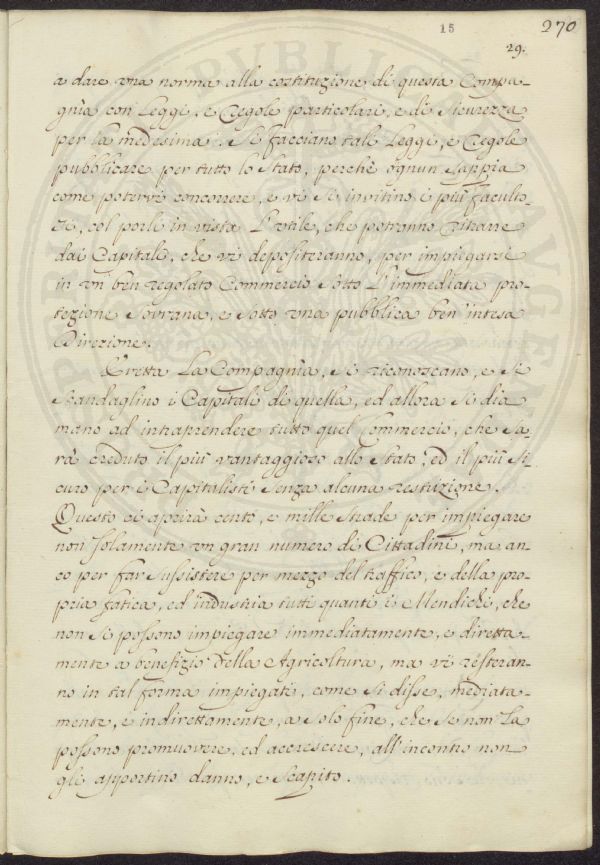 15
270
29.
a dare vna norma alla costituzione di questa Compa-
gnia con Leggi, e Regole particolari, e di sicurezza
per la medesima. Si facciano tali Leggi, e Regole
pubblicare per tutto lo Stato, perchè ognun sappia
come potervi concorrere, e vi si invitino i più faculto-
si, col porli in vista L'vtile, che potranno ritrarre
dai Capitali, che vi depositeranno, per impiegarsi
in vn ben regolato Commercio sotto L'immediata pro-
tezione Sovrana, e sotto vna pubblica ben intesa
Direzione.
Eretta La Compagnia, si riconoscano, e si
scandaglino i Capitali di quella, ed allora si dia
mano ad intraprendere tutto quel Commercio, che sa-
rà creduto il più vantaggioso allo Stato, ed il più si-
curo per i Capitalisti senza alcuna restrizione.
Questo ci aprirà cento, e mille strade per impiegare
non solamente vn gran numero di Cittadini, ma an-
co per far sussistere per mezzo del traffico, e della pro-
pria fatica, ed industria tutti quanti i Mendichi, che
non si possono impiegare immediatamente, e diretta-
mente a benefizio della Agricoltura, ma vi resteran-
no in tal forma impiegati, come si disse, mediata-
mente, e indirettamente, a solo fine, che se non La
possono promuovere, ed accrescere, all'incontro non
gli apportino danno, e Scapito.